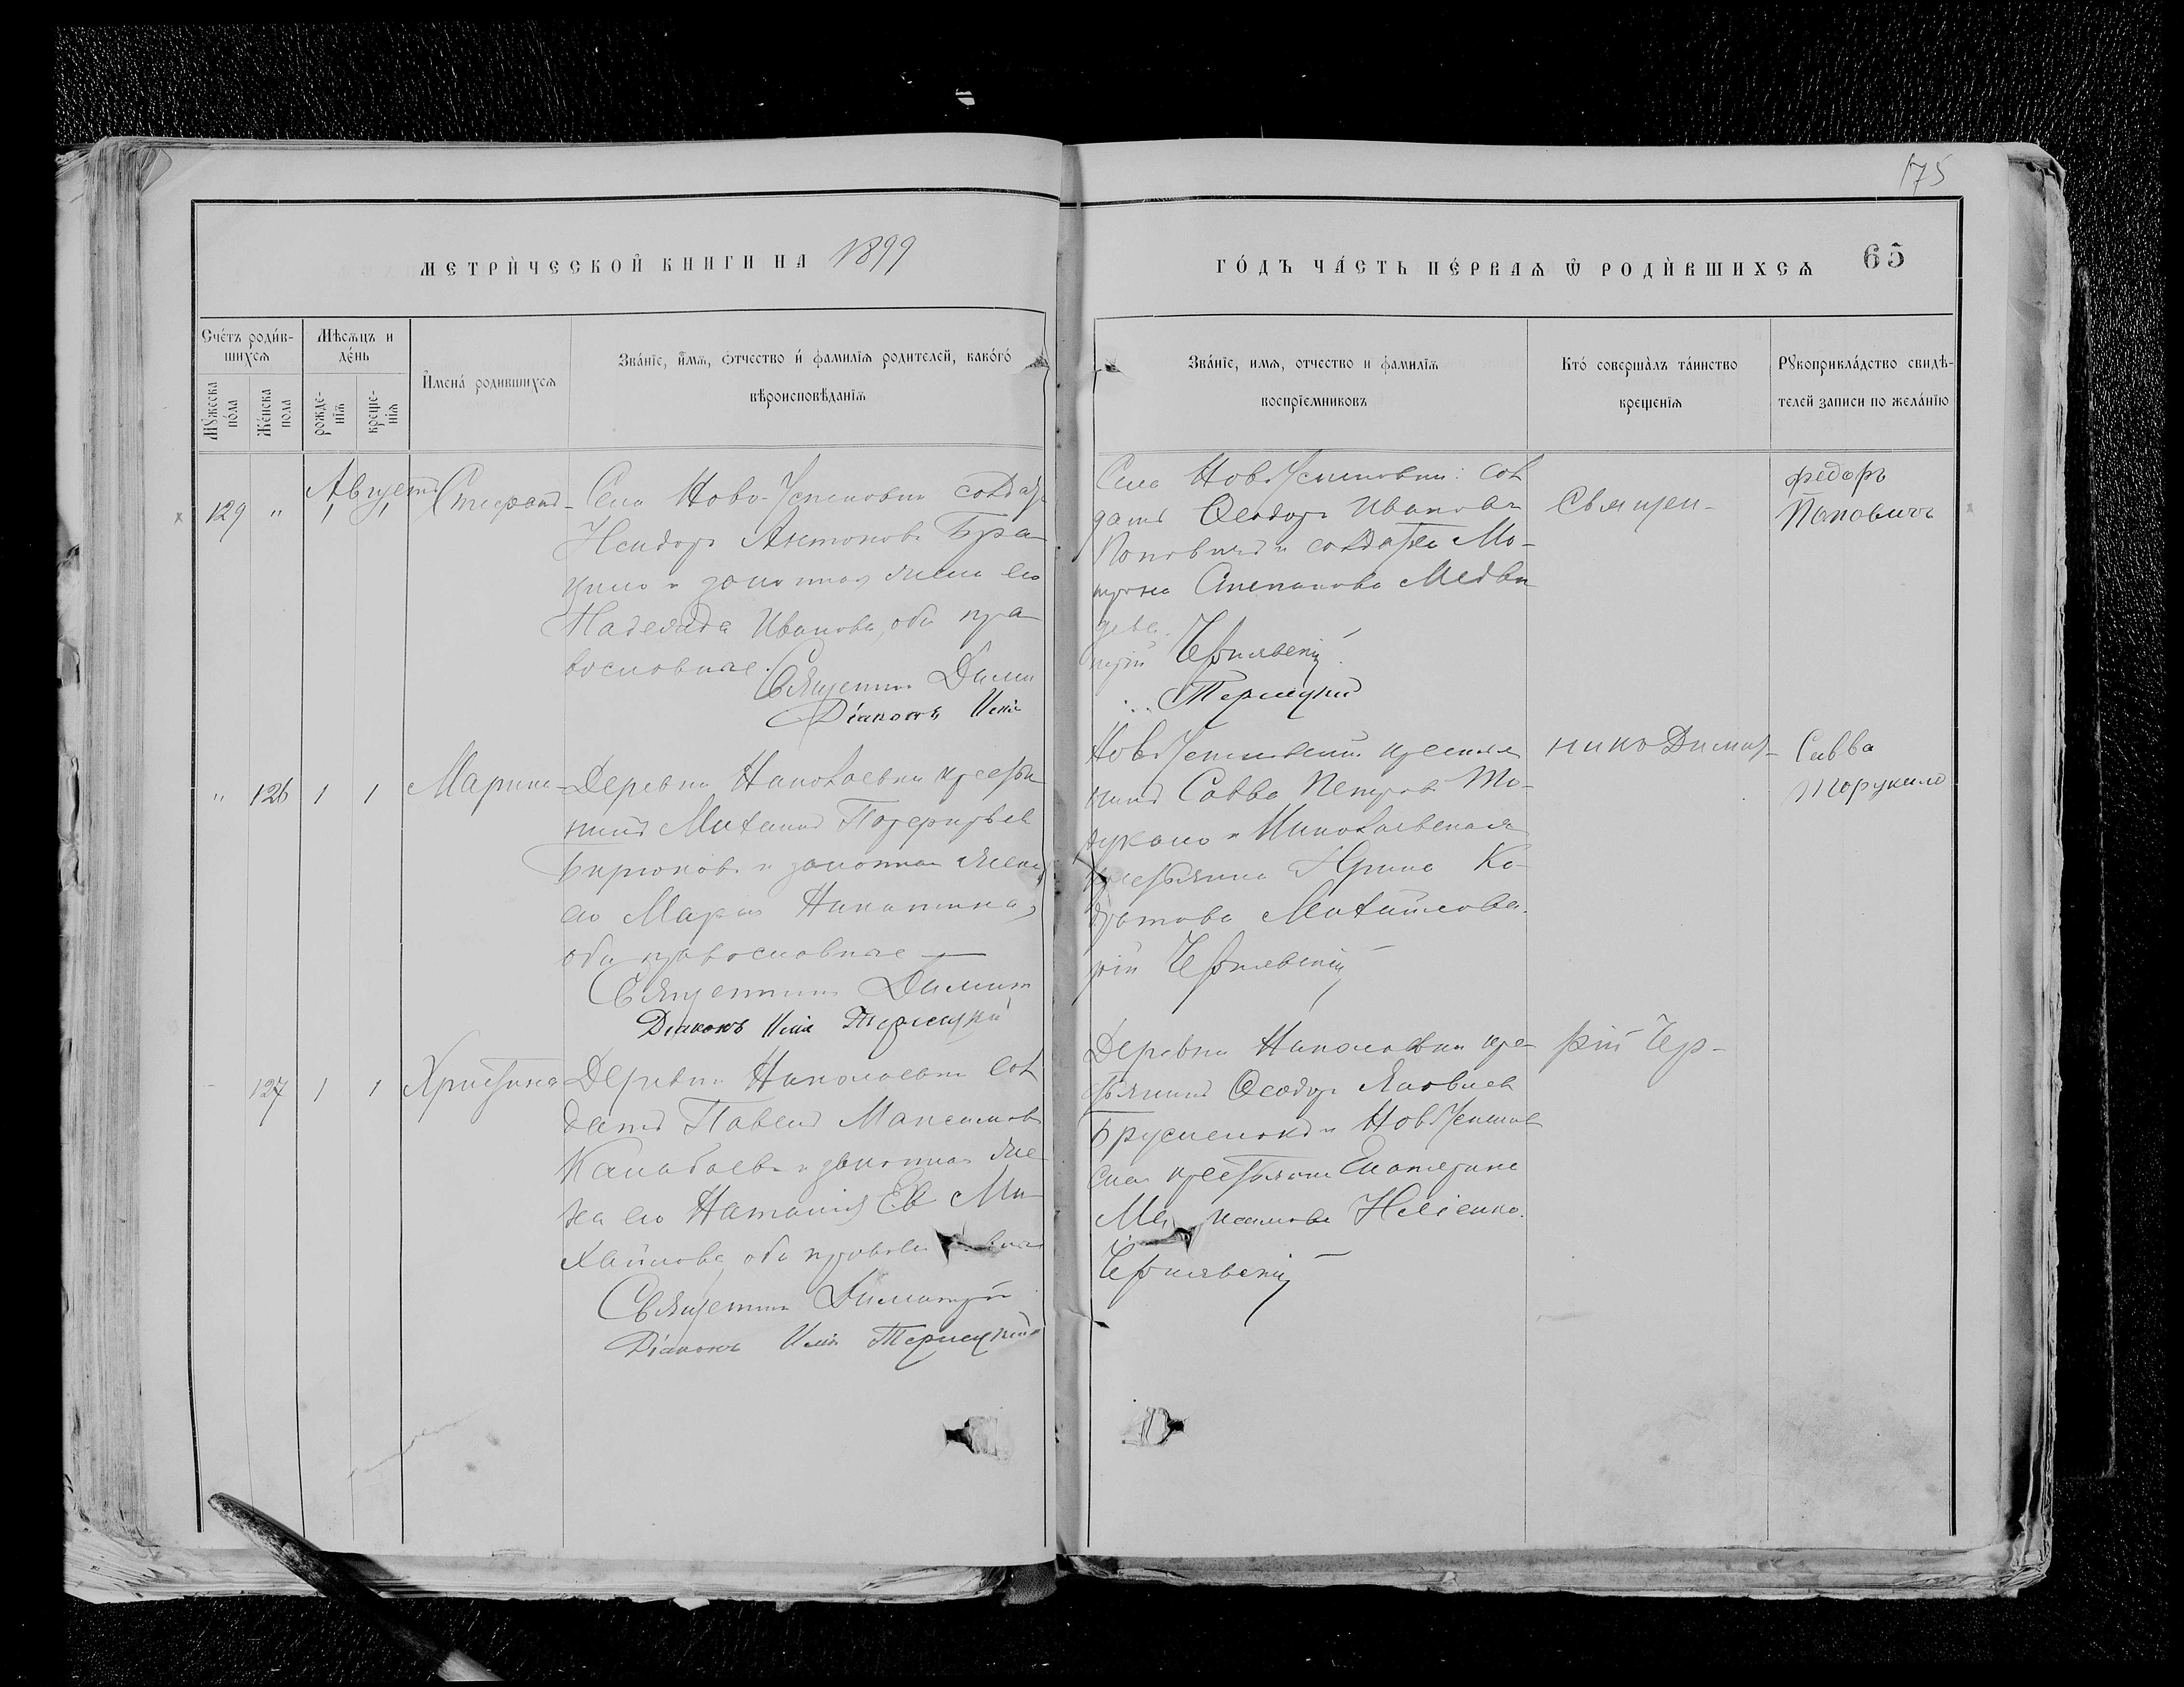 175
МЕТРИ́ЧЕСКОЙ КНИГИ НА 1899
ГО́ДЪ ЧА́СТЬ ПЕ́РВАѦ Ѿ РОДИ́ВШИХСѦ 65
Сче́тъ роди́в-
шихсѧ
Мꙋжеска
по́ла
Же́нска
пола
Мѣсѧцъ и
де́нь
рожде-
нїѧ
креще-
нїѧ
И҆мена́ родившихсѧ
Зва́нїе, и҆́мѧ, ѻтчество и҆ фамилїѧ родителей, како́гѡ
вѣроисповѣданїѧ
Зва́нїе, имѧ, отчество и фамилїѧ
воспрїемниковъ
Кто́ соверша́лъ та́инство
крещенїѧ
Рꙋкоприкла́дство свидѣ-
телей записи по жела́нїю
Августъ
129 " 1 1 Стефанъ
Села Ново-Успеновки солдатъ
Исидоръ Антоновъ Бра-
и законная жена его
Надежда Иванова, оба пра-
вославные.
Священникъ Дими
Діаконъ Илія
Села НовоУспеновки: сол
датъ Ѳеодоръ Ивановъ
Поповичъ и солдатка Мо-
трона Степанова Медвѣ
дева.
трій Чернявскій
Терлецкій
Священ-
Федоръ
Поповичъ
" 126 1 1 Марина
Деревни Николаевки крестья
нинъ Михаилъ
Бирюковъ и законная жена
его Марія Никитина,
оба православные
Священникъ Димит
Діаконъ Илія Терлецкій
НовоУспеновскій крестья
нинъ Савва Петровъ То-
и Николаевская
крестьянка Ирина Ко-
дратова Михайлова.
рій Чернявскій
никъ Димит-
Савва
127 1 1 Христина
Деревни Николаевки сол
датъ Павелъ Максимовъ
и законная же
на его Наталія Ми-
хайлова, оба
Священникъ Димитрій
Діаконъ Илія Терлецкій
Деревни Николаевки кре
стьянинъ Ѳеодоръ Яковлев
и НовоУспенов
ская крестьянка Екатерина
Чернявскій
рій Чер-